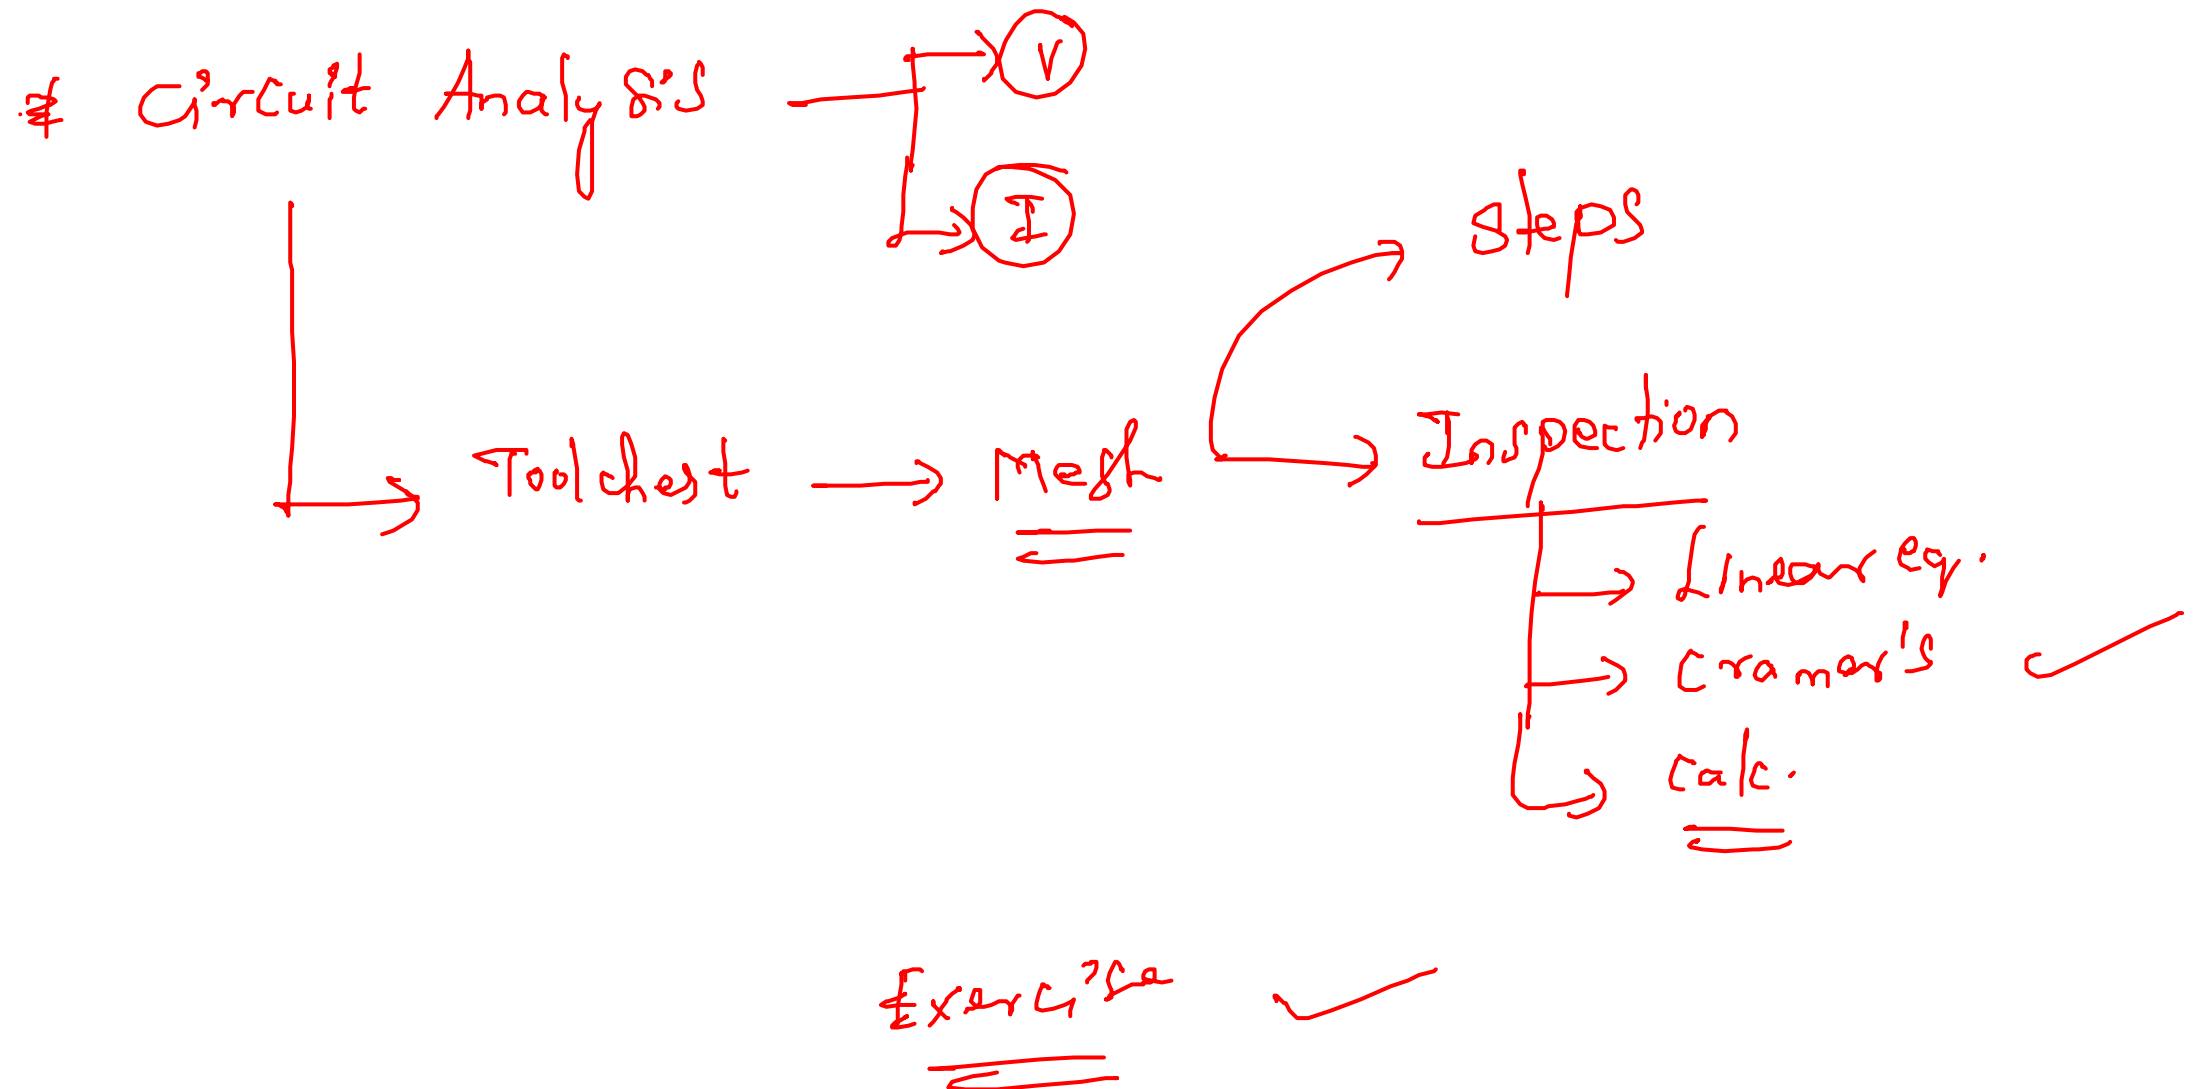 # Circuit Analysis
V
I
Steps
Toolchest
Mesh
Inspection
Linear eq.
Cramar's
calc.
Exercise